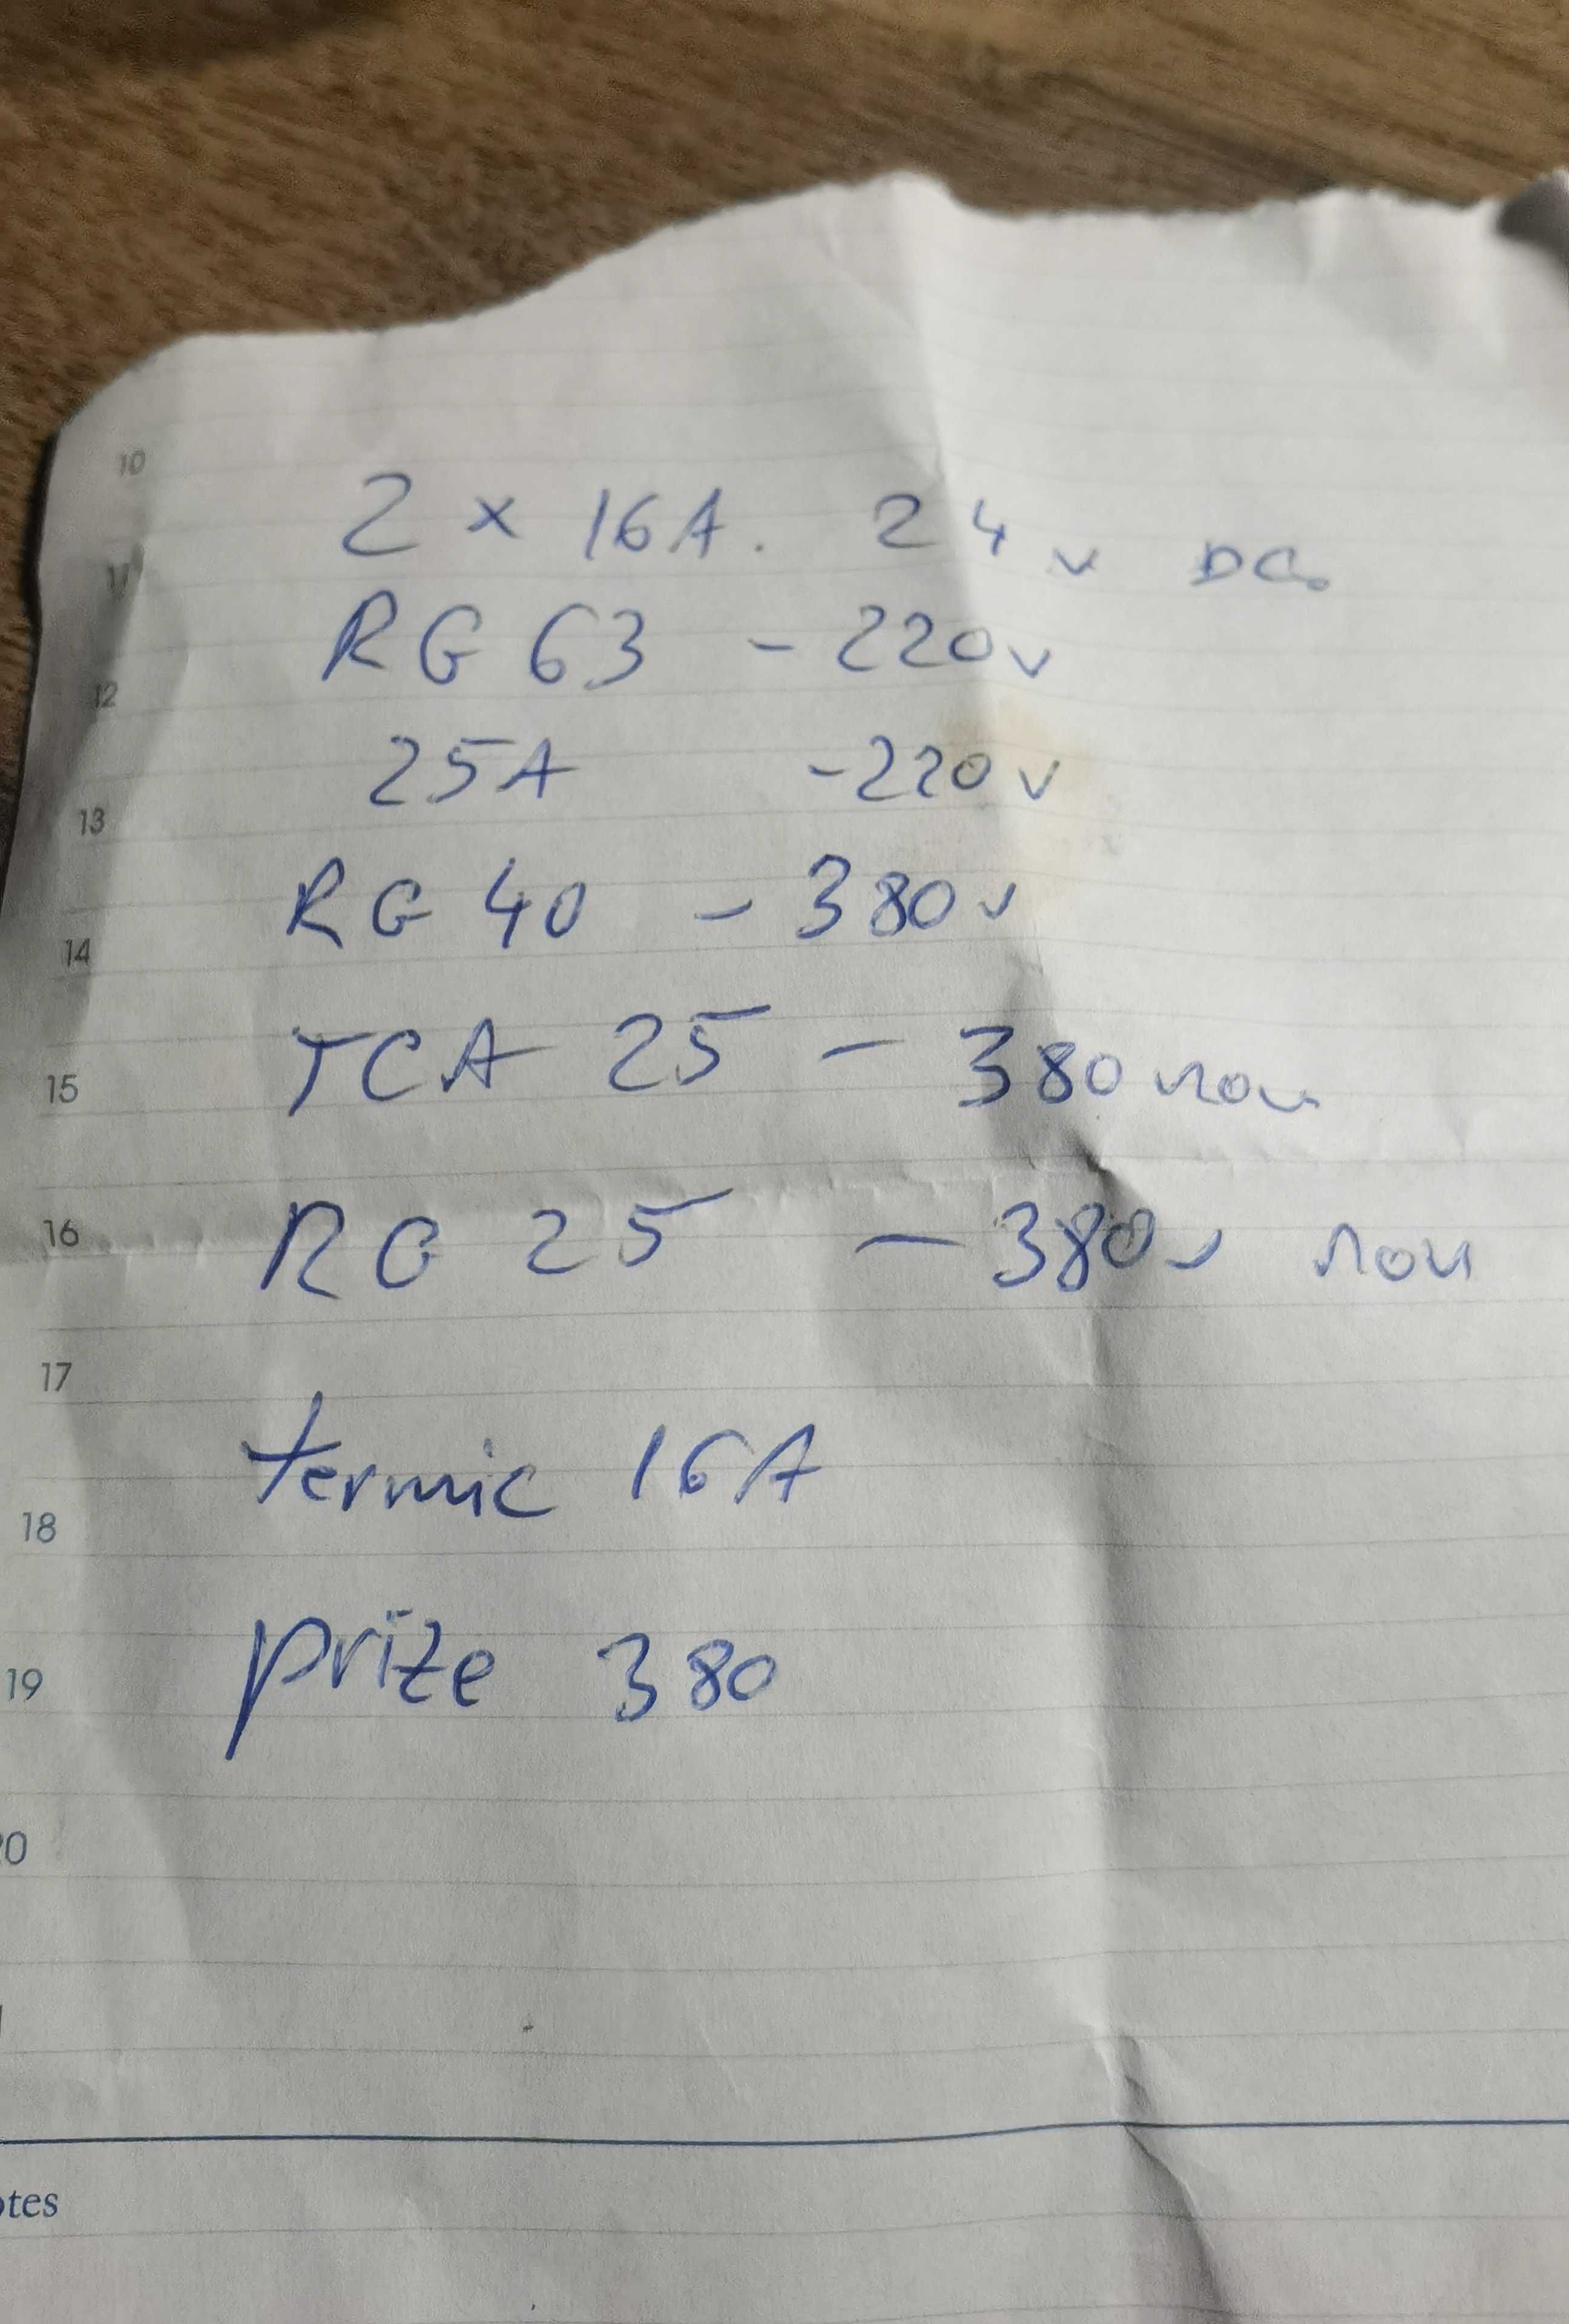 10
2 x 16A. 24 v DC.
11
RG 63 - 220v
12
25A - 220 v
13
RG 40 - 380v
14
TCA 25 - 380 nou
15
RG 25 - 380v nou
16
17
termic 16A
18
prize 380
19
20
otes